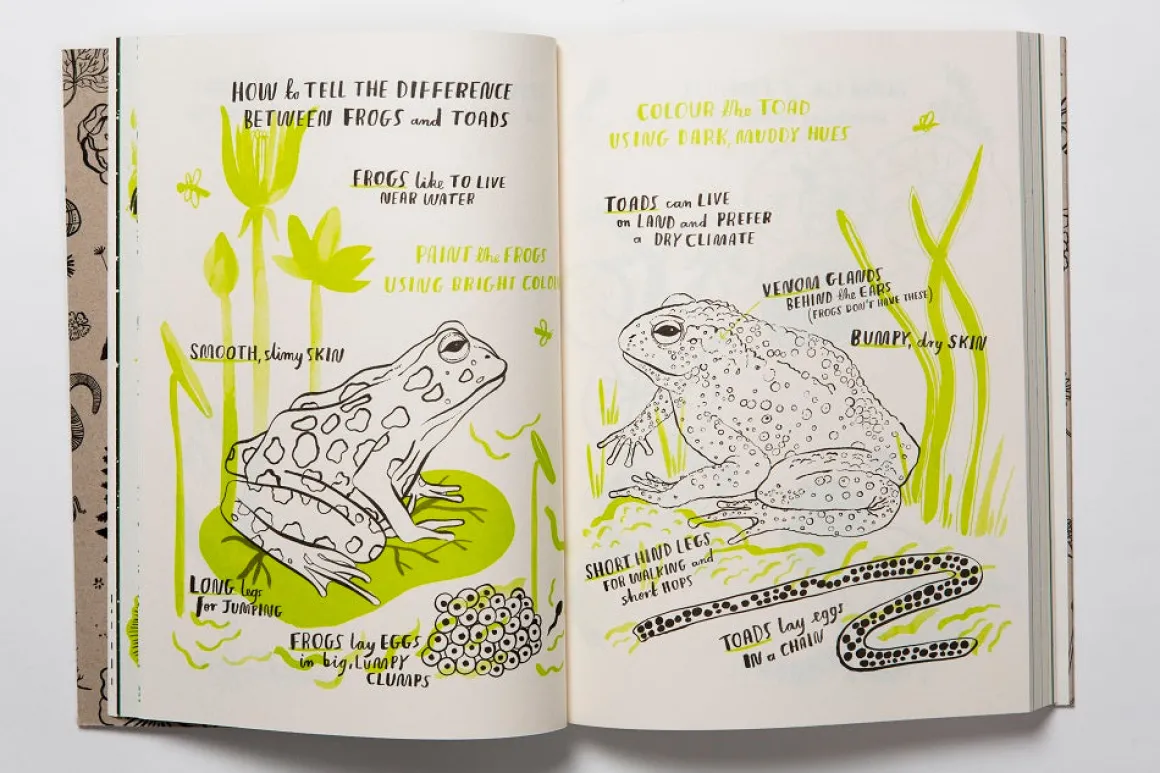 HOW to TELL THE DIFFERENCE
BETWEEN FROGS and TOADS
FROGS like TO LIVE
NEAR WATER
PAINT the FROGS
USING BRIGHT
SMOOTH, slimy SKIN
LONG legs
for JUMPING
FROGS lay EGGS
in big, LUMPY
CLUMPS
COLOUR the TOAD
USING DARK, MUDDY HUES
TOADS can LIVE
on LAND and PREFER
a DRY CLIMATE
VENOM GLANDS
BEHIND the EARS
(FROGS DON'T HAVE THESE)
BUMPY, dry SKIN
SHORT HIND LEGS
FOR WALKING and
short HOPS
TOADS lay eggs
IN a CHAIN